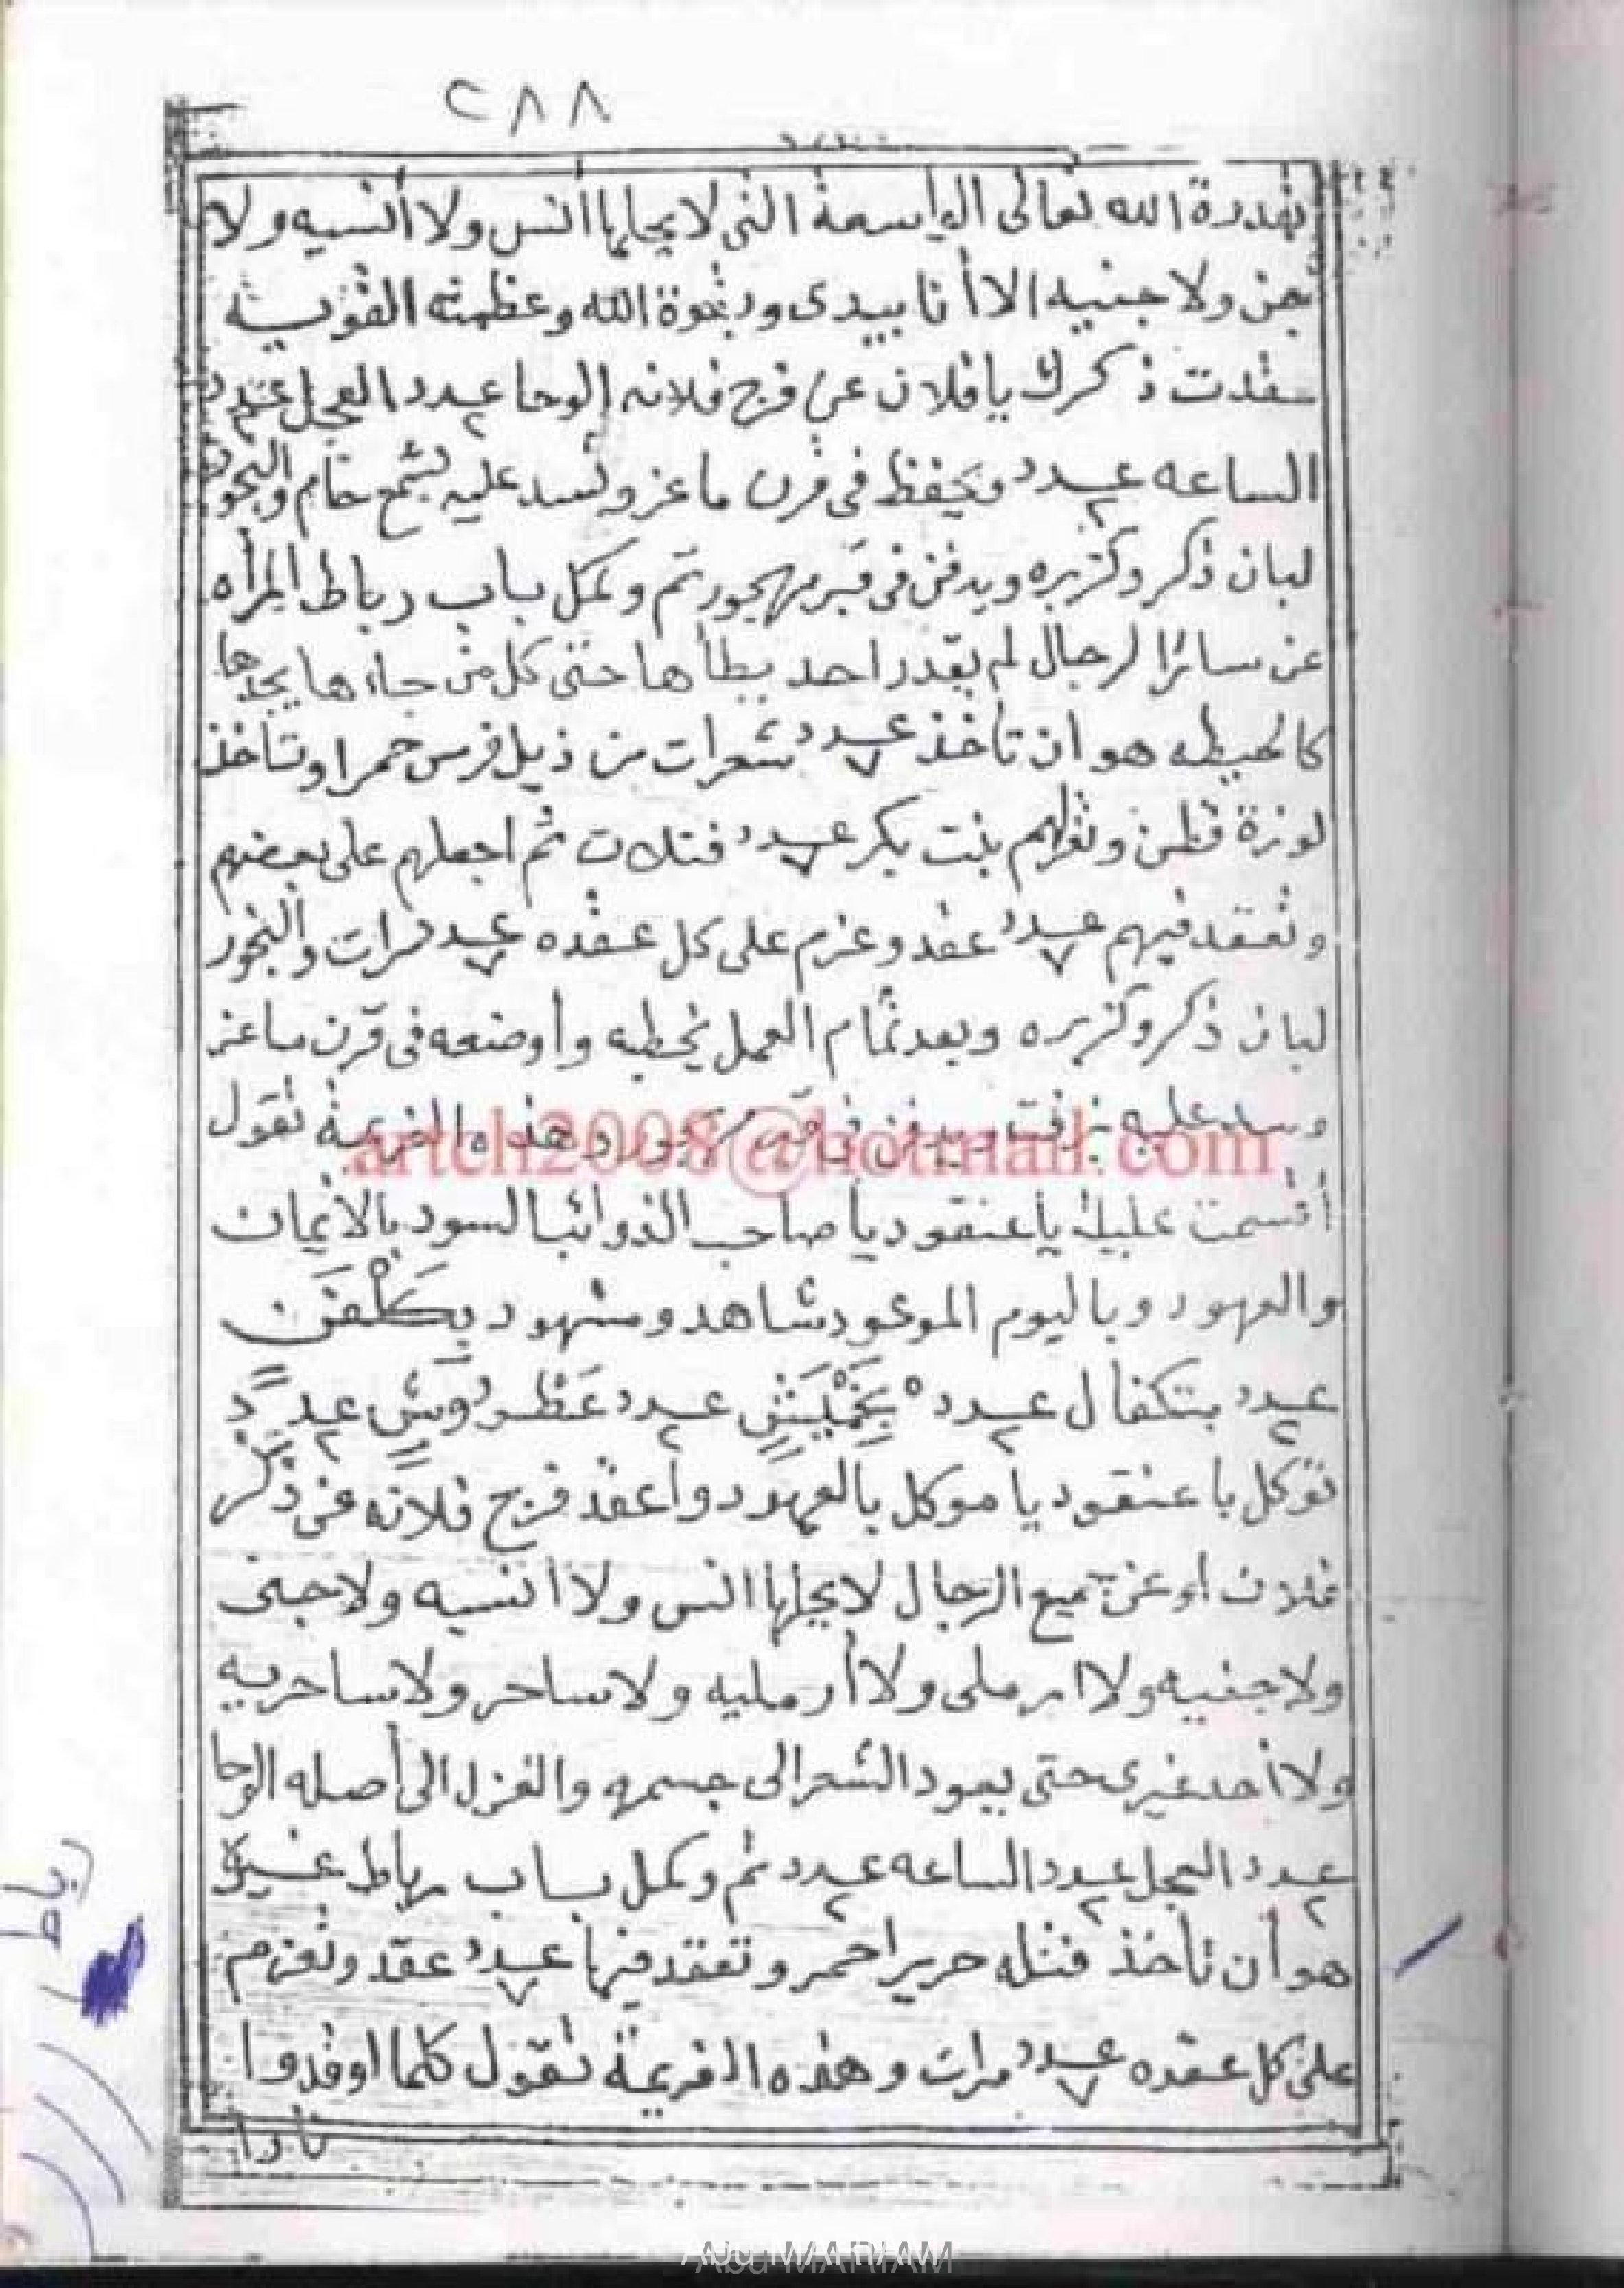 ٢٨٨
بقدرة الله تعالى الواسعة التى لا يحلها انس ولا أنسيه ولا
جن ولا جنيه الا أنا بيدى وبقوة الله وعظمته القويه
عقدت ذكرك يا فلان عن فرج فلانه الوحا عدد ٢ العجل عدد ٢
الساعه عدد ٢ ويحفظ فى قرن ماعز وتسد عليه بشمع خام والبخور
لبان ذكر وكزبره ويدفن فى قبر مهجور تم وكمل باب رباط المرأه
عن سائر الرجال لم يقدر احد يطأها حتى كل من جاءها يجدها
كالحيطه هو ان تاخذ عدد ٧ شعرات من ذيل فرس حمرا وتأخذ
لوزة قطن وتغزلهم بنت بكر عدد ٧ فتلات ثم اجعلهم على بعضهم
وتعقد فيهم عدد ٧ عقد وعزم على كل عقده عدد ٧ مرات والبخور
لبان ذكر وكزبره وبعد تمام العمل وأوضعه فى قرن ماعز
وسد عليه بزفت ويدفن فى قبر مهجور وهذه العزيمة تقول
أقسمت عليك يا عنقود يا صاحب الذوائب السود بالأيمان
والعهود وباليوم الموعود شاهد ومشهود بكلفن
عدد ٢ بتكفال عدد ٢ بخميش عدد ٢ عطروش عدد ٢
توكل يا عنقود يا موكل بالعهود وأعقد فرج فلانه عن ذكر
فلان او عن جميع الرجال لا يحلها انس ولا أنسيه ولا جنى
ولا جنيه ولا ارملى ولا أرمليه ولا ساحر ولا ساحريه
ولا أحد غيرى حتى يعود الشعر الى جسمه والغزل الى أصله الوحا
عدد ٢ العجل عدد ٢ الساعه عدد ٢ تم وكمل باب رباط
هو أن تأخذ فتله حرير احمر وتعقد فيها عدد ٧ عقد وتعزم
على كل عقده عدد ٧ مرات وهذه العزيمة تقول كلما اوقدوا
نارا
رباط
artch2008@hotmail.com
Abu MARIAM